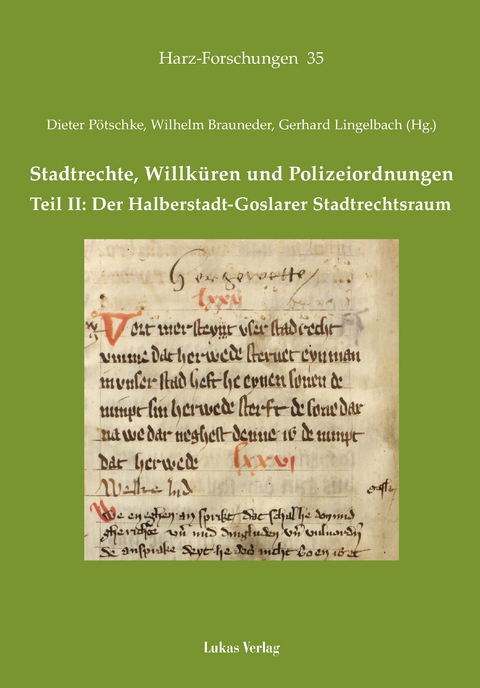 Harz-Forschungen 35
Dieter Pötschke, Wilhelm Brauneder, Gerhard Lingelbach (Hg.)
Stadtrechte, Willküren und Polizeiordnungen
Teil II: Der Halberstadt-Goslarer Stadtrechtsraum
lxxv
Vort mer steyt vser stad recht
vmme dat herwede steruet eyn man
in vnser stad heft he eynen sonen de
nimpt sin herwede sterft de sone dar
na we dar neghest denne is de nimpt
dat herwede lxxvi
We en eghen an sprikt dat schal he don
vnd
de ansprake he dat nicht
Lukas Verlag